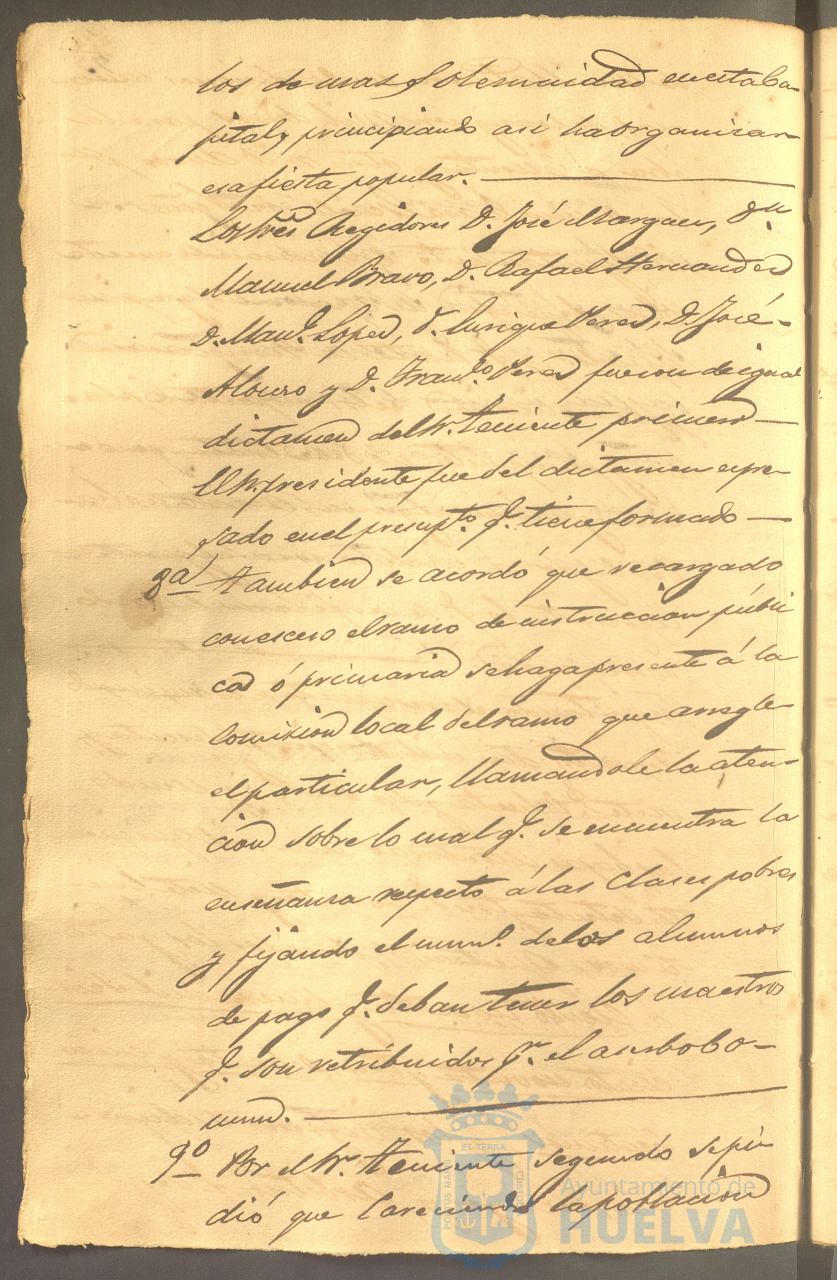 los de mas Solemnidad en esta Ca-
pital, principiando asi ha organizar
esa fiesta popular.
Los tres Regidores D. José Margau, Dn
Manuel Bravo, D. Rafael Hernandez
D. Manl. Lopez, D. Enrique Perez, D. José
Alonso y D. Franco. Perez fueron de igual
dictamen del Sr. teniente primero
El Sr. presidente fue del dictamen espre-
sado en el presupto. q. tiene formado
8a. tambien se acordó que recargado
con esceso el ramo de instruccion públi
ca ó primaria se haga presente á la
Comision local del ramo que arregle
el particular, llamandole la aten-
cion sobre lo mal q. se encuentra la
enseñanza respecto á las Clases pobres
y fijando el numo. de los alumnos
de pago q. deban tener los maestros
q. son retribuidos pr. el acerbo co-
mun.
9o Por el Sr. Teniente segundo se pi-
dió que Careciendo la poblacion
PORTUS MARIS ET TERRAE CUSTODIA
Ayuntamiento de
HUELVA